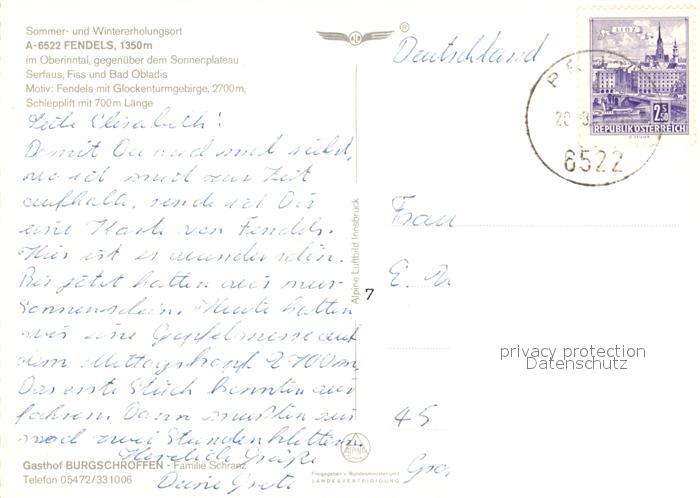 Sommer- und Wintererholungsort
A-6522 FENDELS, 1350m
im Oberinntal, gegenüber dem Sonnenplateau
Serfaus, Fiss und Bad Obladis
Motiv: Fendels mit Glockenturmgebirge, 2700m,
Schlepplift mit 700m Länge
Liebe Elisabeth!
Damit Du auch mal siehst,
wo ich mich zur Zeit
aufhalte, sende ich Dir
eine Karte von Fendels.
Hier ist es wunderschön.
Bis jetzt hatten wir nur
Sonnenschein. Heute hatten
wir eine Gipfelmesse auf
dem Mittagskopf 2700m,
Das erste Stück konnten wir
fahren. Dann mußten wir
noch zwei Stunden klettern.
Herzliche Grüße
Deine Grete
Gasthof BURGSCHROFFEN - Familie Schranz
Telefon 05472/331006
®
Alpine Luftbild Innsbruck
7
ALPINE
Freigegeben v. Bundesministerium f.
LANDESVERTEIDIGUNG
Deutschland
LINZ
2.50
S
REPUBLIK ÖSTERREICH
6522
Frau
E.
45
privacy protection
Datenschutz